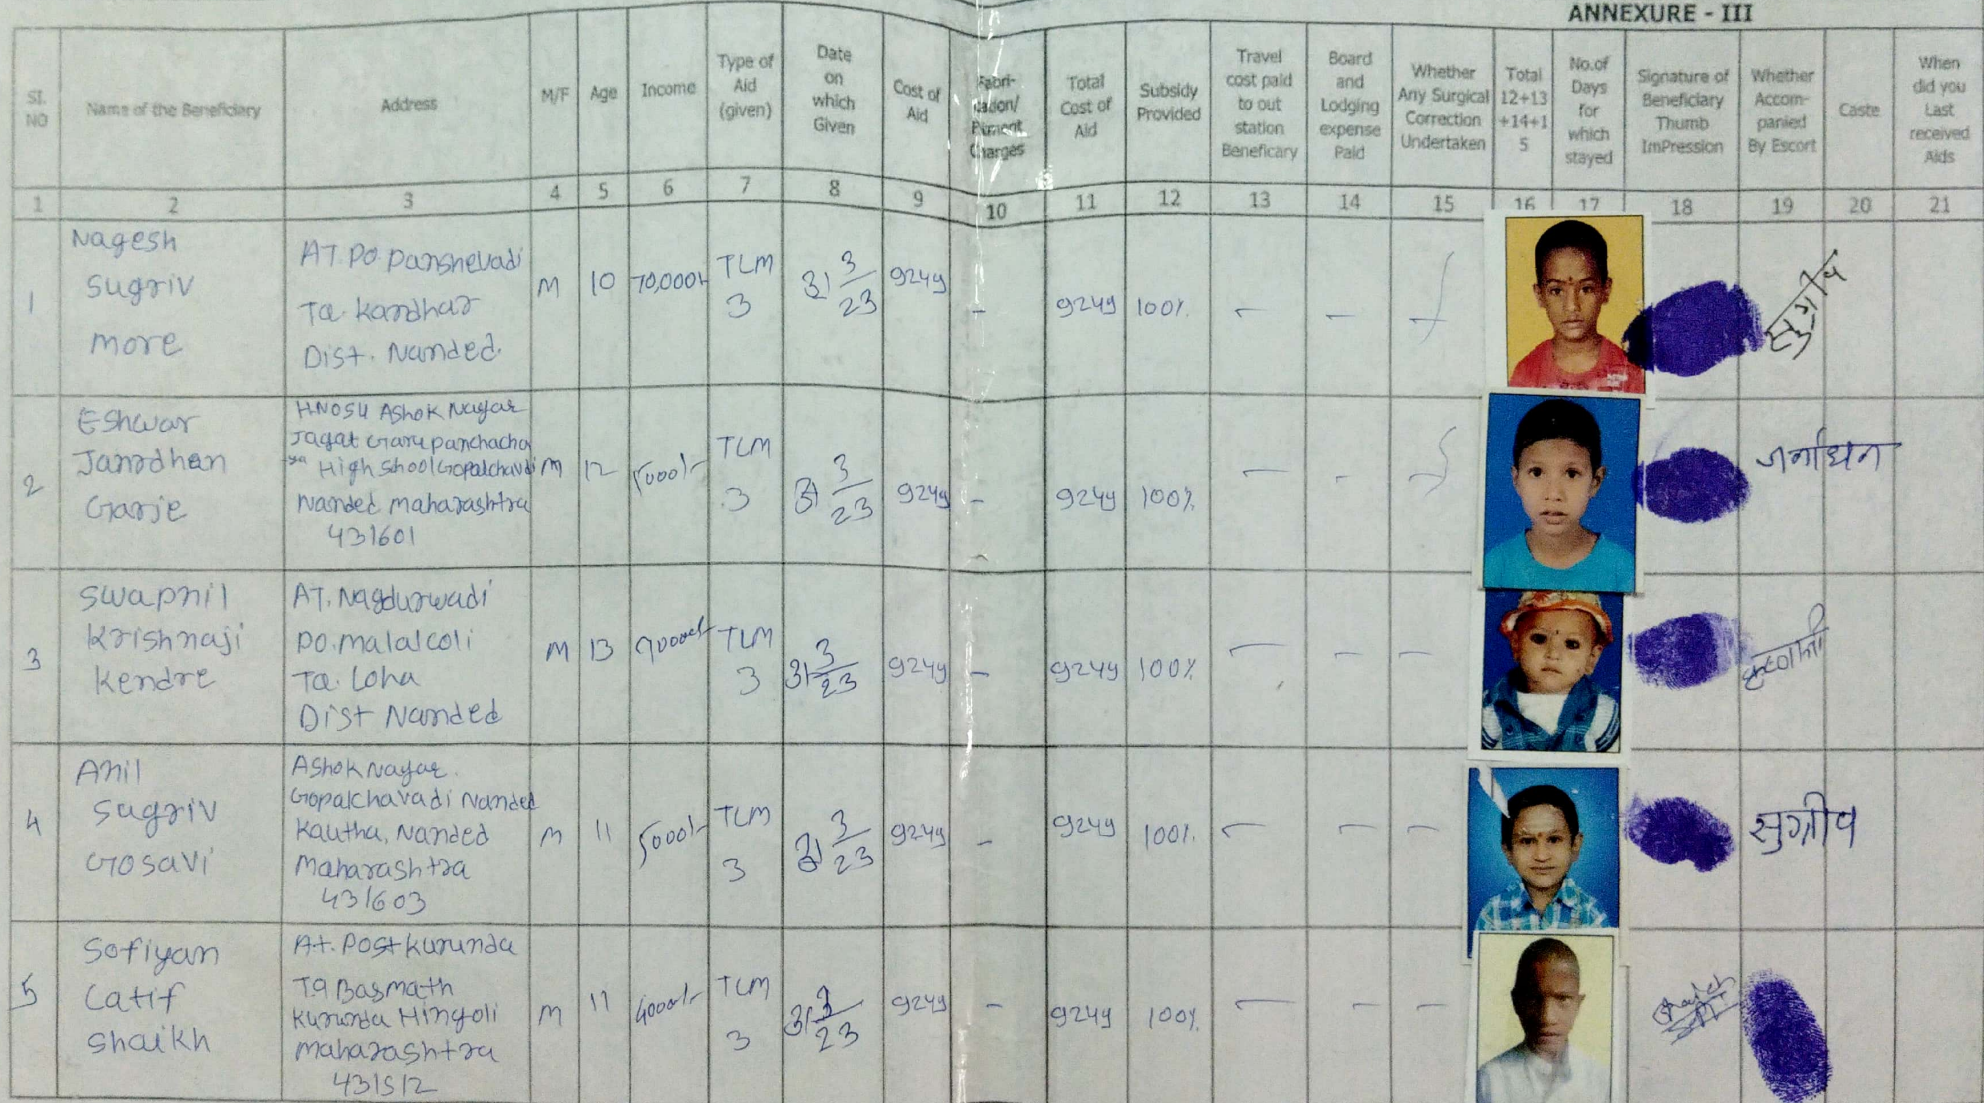 ANNEXURE - III
SI. NO
Name of the Beneficiary
Address
M/F
Age
Income
Type of Aid (given)
Date on which Given
Cost of Aid
Charges
Total Cost of Aid
Subsidy Provided
Travel cost paid to out station Beneficary
Board and Lodging expense Paid
Whether Any Surgical Correction Undertaken
Total 12+13 +14+1 5
No.of Days for which stayed
Signature of Beneficiary Thumb ImPression
Whether Accom- panied By Escort
Caste
When did you Last received Aids
1 2 3 4 5 6 7 8 9 10 11 12 13 14 15 16 17 18 19 20 21
1
Nagesh
Sugriv
more
AT. Po. Panshevadi
Ta. Kandhar
Dist. Nanded.
M 10 70,000/-
TLM
3
31 3/23
9249 - 9249 100% - -
सुग्रीव
2
Eshwar
Janrdhan
Garje
H.NO54 Ashok Nagar
Jagat Guru panchacha
ya High shool Gopalchavdi
Nanded maharashtra
431601
M 12 5000/-
TLM
3
31 3/23
9249 - 9249 100% - -
जर्नाधन
3
Swapnil
Krishnaji
Kendre
AT. Nagdurwadi
PO. malalcoli
Ta. Loha
Dist Nanded
M 13
TLM
3
31 3/23
9249 - 9249 100% - - -
4
Anil
Sugriv
Gosavi
Ashok Nagar.
Gopalchavadi Nanded
Kautha, Nanded
Maharashtra
431603
M 11 5000/-
TLM
3
31 3/23
9249 - 9249 100% - - -
सुग्रीव
5
Sofiyan
Latif
Shaikh
At. Post Kurunda
Tq Basmath
Kurunda Hingoli
Maharashtra
431512
M 11
TLM
3
31 3/23
9249 - 9249 100% - - -